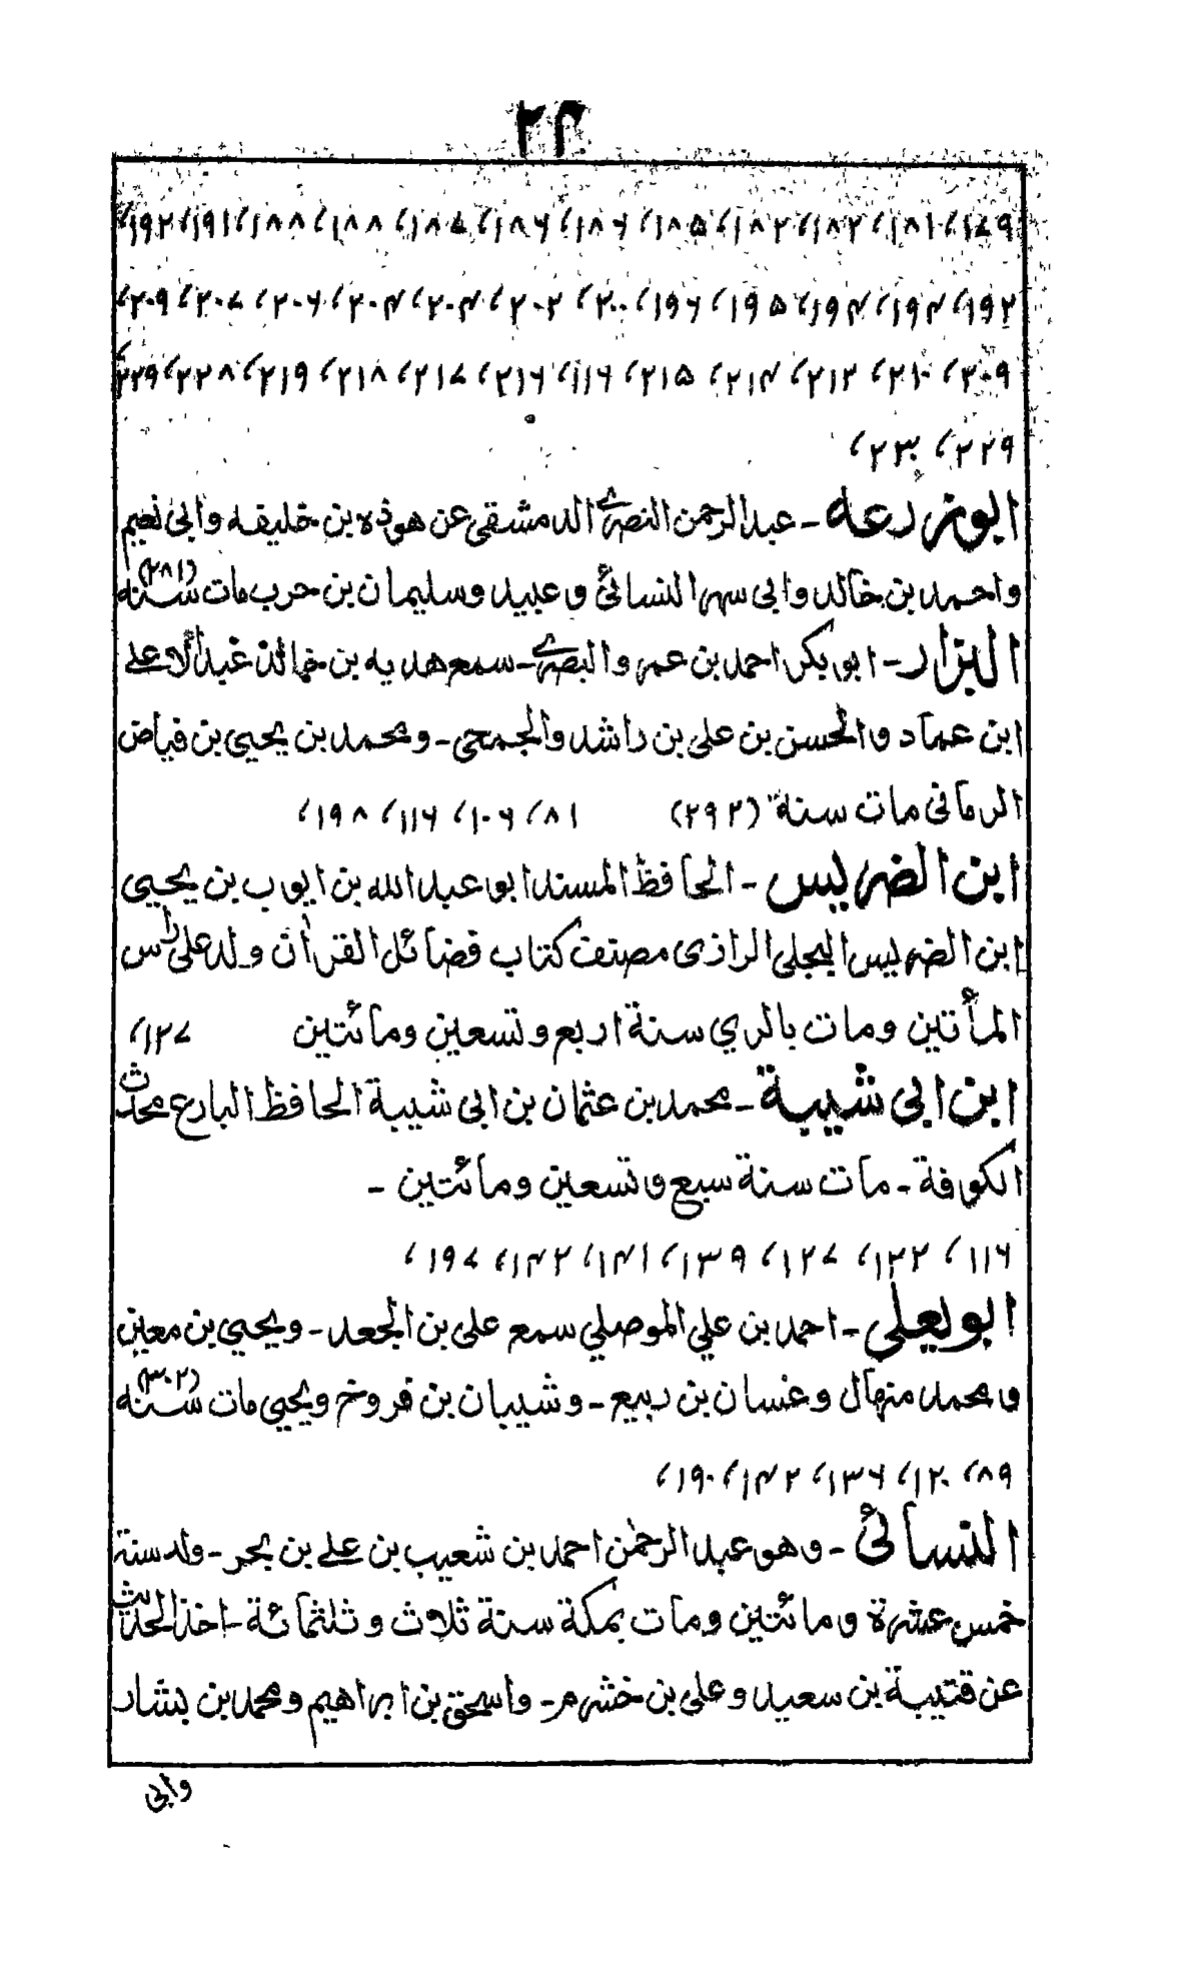 ٢٤
١٧٩، ١٨١، ١٨٢، ١٨٢، ١٨٥، ١٨٦، ١٨٦، ١٨٧، ١٨٨، ١٨٨، ١٩١، ١٩٢،
١٩٢، ١٩٤، ١٩٤، ١٩٥، ١٩٦، ٢٠٠، ٢٠٢، ٢٠٤، ٢٠٤، ٢٠٦، ٢٠٧، ٢٠٩،
٢٠٩، ٢١٠، ٢١٢، ٢١٤، ٢١٥، ١١٦، ٢١٦، ٢١٧، ٢١٨، ٢١٩، ٢٢٨، ٢٢٩،
٢٢٩، ٢٣٠،
ابوزرعه - عبدالرحمن النصرے الدمشقی عن هوذه بن خليفه وابی نعيم
واحمد بن خالد وابی سهر النسائیٔ و عبيد وسليمان بن حرب مات سنه (٢٨١)
البزار - ابوبکر احمد بن عمرو البصرے - سمع هديه بن خالد عبدالاعلے
ابن عماد والحسن بن علی بن راشد والجمحی - ومحمد بن يحيی بن فياض
الرمانی مات سنة (٢٩٢) ٨١، ١٠٦، ١١٦، ١٩٨،
ابن الضريس - الحافظ المسند ابو عبد الله بن ايوب بن يحيی
ابن الضريس البجلی الرازی مصنف کتاب فضائل القرأن ولد علی رأس
المأتين ومات بالري سنة اربع وتسعين ومائتين ١٢٧،
ابن ابی شيبة - محمد بن عثمان بن ابی شيبة الحافظ البارع محدث
الکوفة - مات سنة سبع وتسعين ومائتين -
١١٦، ١٢٢، ١٢٧، ١٣٩، ١٤١، ١٤٢، ١٩٧،
ابو يعلی - احمد بن علي الموصلي سمع علی بن الجعد - ويحيی بن معين
و محمد منهال وغسان بن ربيع - وشيبان بن فروخ ويحيی مات سنه (٣٠٢)
٨٩، ١٢٠، ١٣٦، ١٤٢، ١٩٠،
النسائیٔ - وهو عبد الرحمٰن احمد بن شعيب بن علے بن بحر - ولد سنة
خمس عشرة ومائتين ومات بمکة سنة ثلاث وثلثمائة - اخذ الحديث
عن قتيبة بن سعيد وعلی بن خشرم - واسحق بن ابراهيم ومحمد بن بشار
وابی